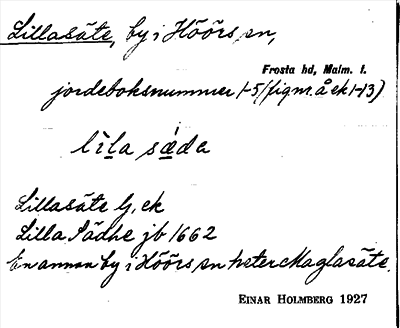 Lillasäte, by i Höörs sn,
Frosta hd, Malm. l.
jordeboksnummer 1-5 (fig nr. å ek 1-13)
lìla sáda
Lillasäte G. ek
Lilla Sädhe jb 1662
En annan by i Höörs sn heter Maglasäte.
EINAR HOLMBERG 1927